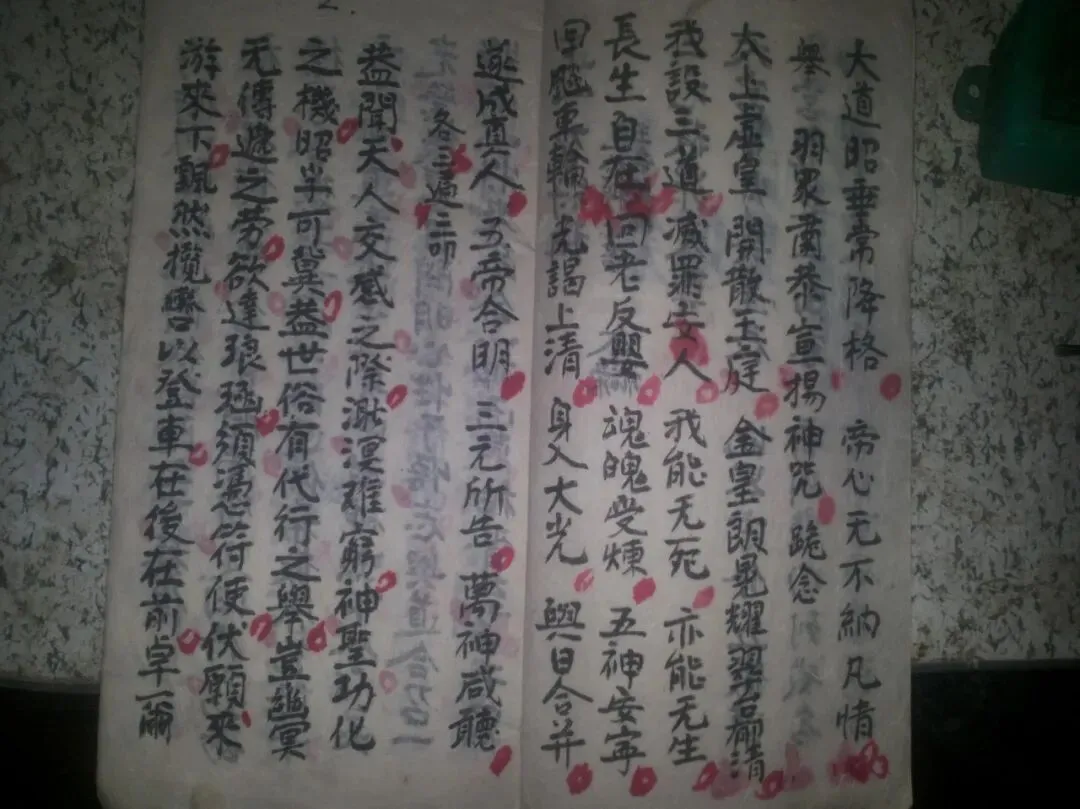 大道昭垂常降格 帝心无不納凡情
舉 羽眾肅恭宣揚神咒 跪念
太上虛皇 開散玉庭 金皇朗晃耀 清
我設三道 滅罪 人 我能无死 亦能无生
長生自在 回老反嬰 魂魄受煉 五神安寧
回飈車輪 先謁上清 身入大光 興日合并
遂成真人 五帝合明 三元所告 萬神咸聽
各三遍三叩
盖聞天人交感之際 溟難窮神聖功化
之機昭 可冀盖世俗有代行之舉豈幽冥
无傳遞之劳欲達琅函須憑符使伏願来
游來下飄然攬轡以登車在後在前卓爾
2